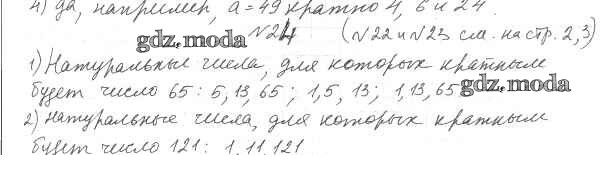 4) да, например, a = 49 кратно 4, 6 и 24.
gdz.moda №24 (№22 и №23 см. на стр. 2, 3)
1) Натуральные числа, для которых кратным
будет число 65: 5, 13, 65; 1, 5, 13; 1, 13, 65 gdz.moda
2) натуральные числа, для которых кратным
будет число 121: 1, 11, 121